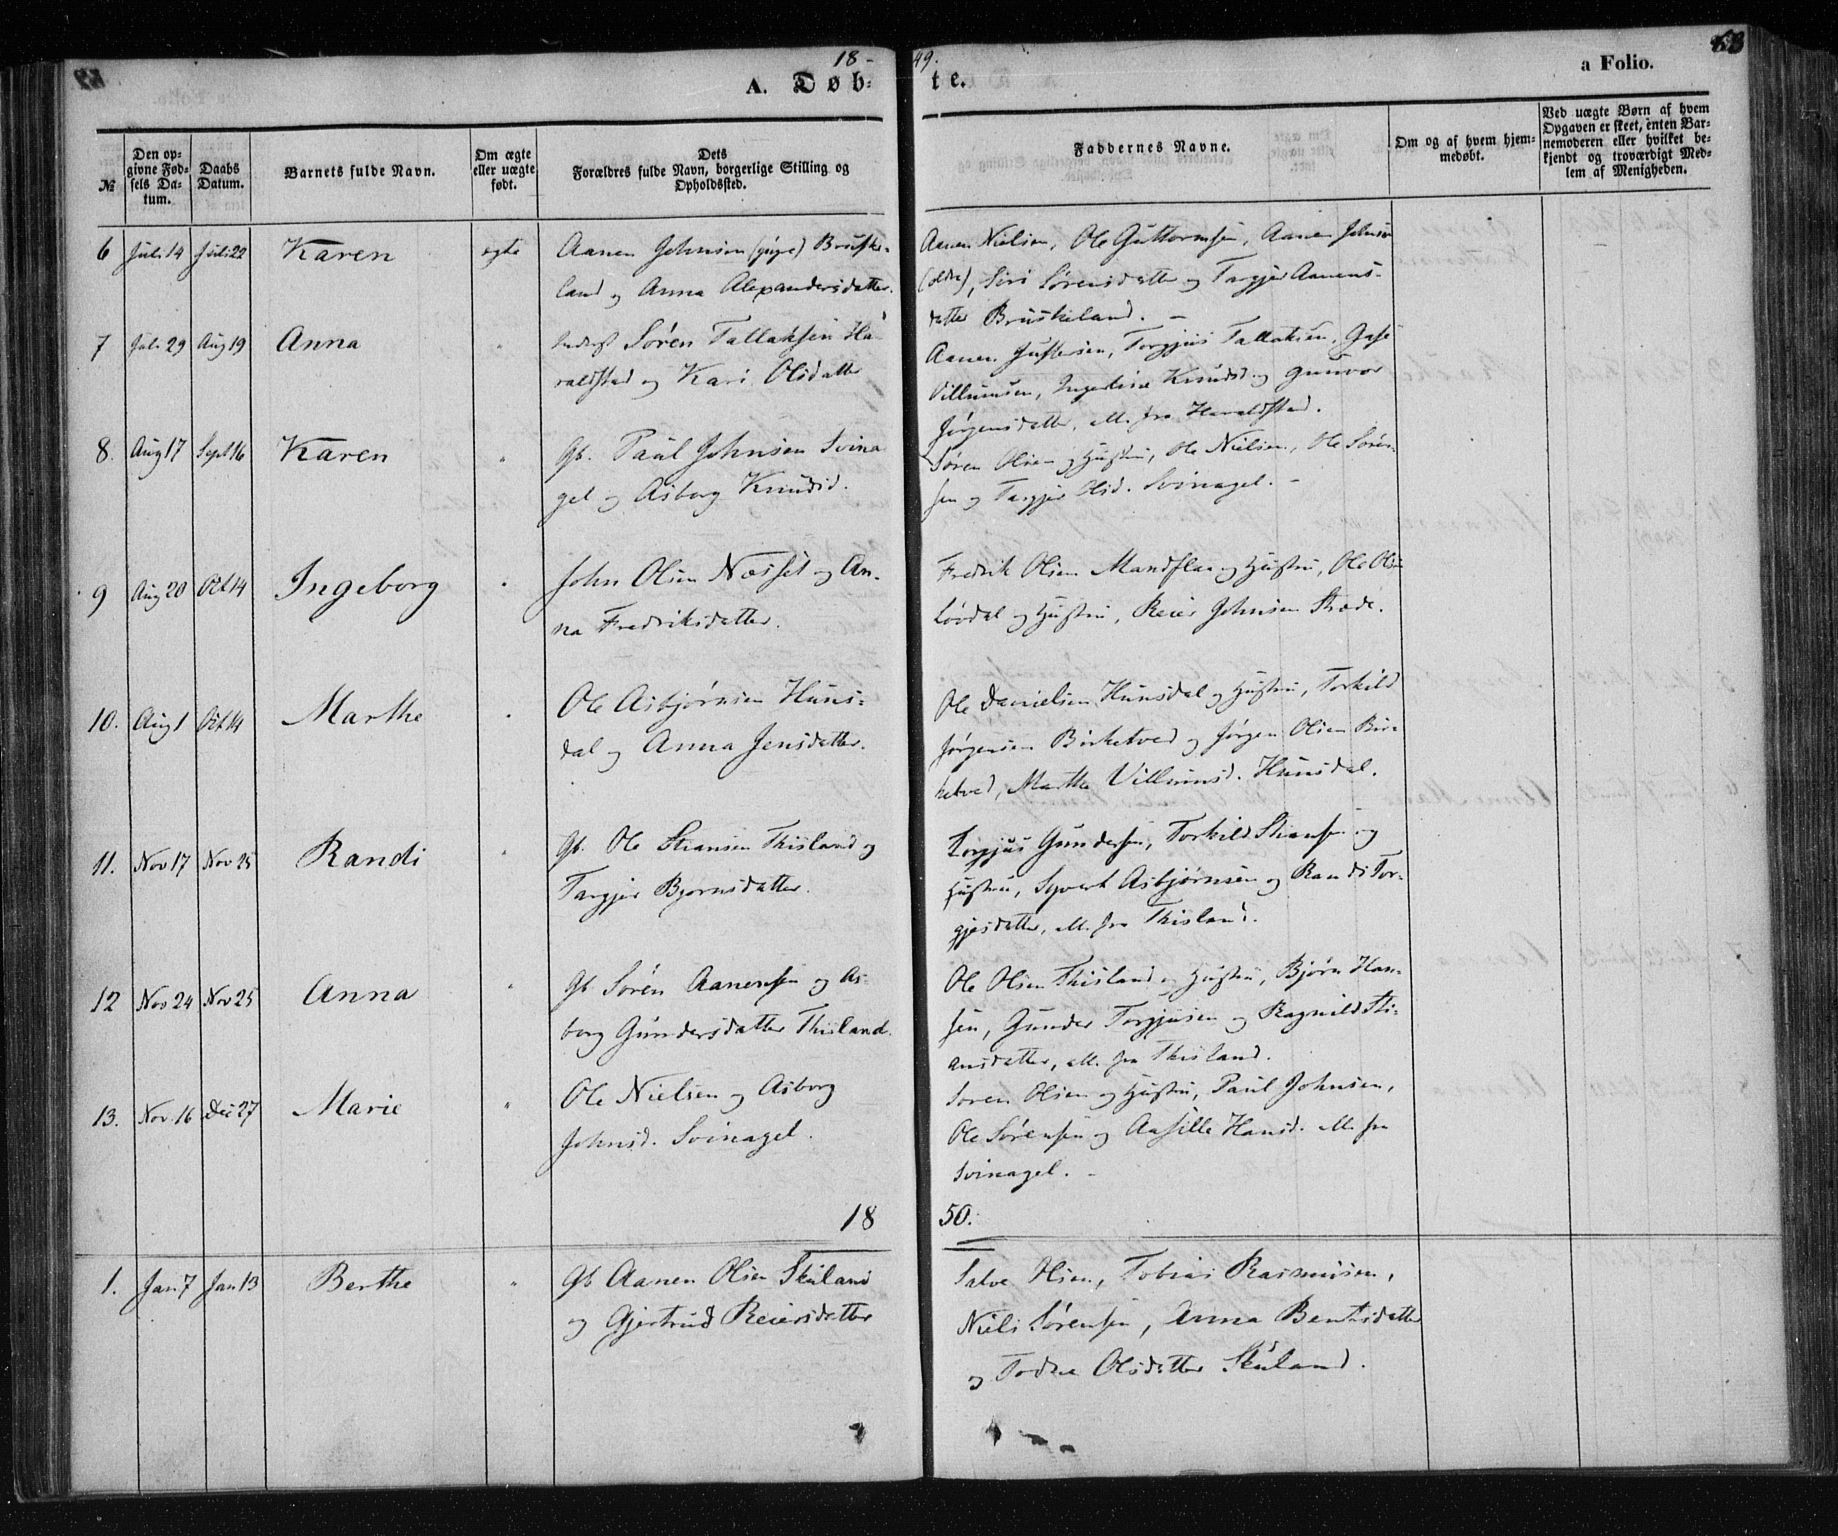 18-49.
A. Døbte.
a Folio.
63
№
Den opgivne Fødsels Datum.
Daabs Datum.
Barnets fulde Navn.
Om ægte eller uægte født.
Dets Forældres fulde Navn, borgerlige Stilling og Opholdssted.
Faddernes Navne.
Om og af hvem hjemmedøbt.
Ved uægte Børn af hvem Opgaven er skeet, enten Barnemoderen eller hvilket bekjendt og troværdigt Medlem af Menigheden.
6 Juli 14 Juli 22 Karen ægte Aanen Johnsen (yngre) Bruske-
land og Anna Alexandersdatter.
Aanen Nielsen, Ole Guttormsen, Aanen Johnsen
(ældre), Siri Sørensdatter og Targjer Aanens-
datter Bruskeland. -
7 Juli 29 Aug 19 Anna " Inderst Søren Tallaksen Ha-
raldstad og Kari Olsdatter
Aanen Justesen, Torgjus Tallaksen, Gase
Villumsen, Ingerline Knudsd. og Gunvor
Jørgensdatter, all. fra Haraldstad.
8. Aug 17 Sept 16 Karen " Gb. Paul Johnsen Svina-
gel og Asborg Knudsd.
Søren Olsen og Hustru, Ole Nielsen, Ole Søren-
sen og Targjer Olsd. Svinagel. -
9 Aug 20 Oct 14 Ingeborg " John Olsen Næsset og An-
na Fredriksdatter.
Fredrik Olsen Mandflaa og Hustru, Ole Olsen
Løvdal og Hustru, Reier Johnsen Stræde.
10. Aug 1 Oct 14 Marthe " Ole Asbjørnsen Huns-
dal og Anna Jensdatter.
Ole Danielsen Hunsdal og Hustru, Torkild
Jørgensen Birketved og Jørgen Olsen Bir-
ketved, Marthe Villumsd. Hunsdal.
11. Nov 17 Nov 25 Randi " Gb. Ole Stiansen Thisland og
Targjer Bjørnsdatter.
Torgjus Gundersen, Torkild Stiansen og
Hustru, Syvert Asbjørnsen og Randi Tor-
gjusdatter, all. fra Thisland.
12 Nov 24 Nov 25 Anna " Gb Søren Aanensen og As-
borg Gundersdatter Thisland.
Ole Olsen Thisland og Hustru, Bjørn Han-
sen, Gunder Torgjusen og Ragnild Sti-
ansdatter, all. fra Thisland.
13. Nov. 16 Dec 27 Marie " Ole Nielsen og Asborg
Johnsd. Svinagel.
Søren Olsen og Hustru, Paul Johnsen,
Ole Sørensen og Aasille Hansd. all. fra
Svinagel. -
18 50.
1. Jan. 7 Jan 13 Berthe " Gb Aanen Olsen Skuland
og Gjertrud Reiersdatter
Salve Olsen, Tobias Rasmusen,
Niels Sørensen, Anna Bentsdatter
og Todne Olsdatter Skuland.